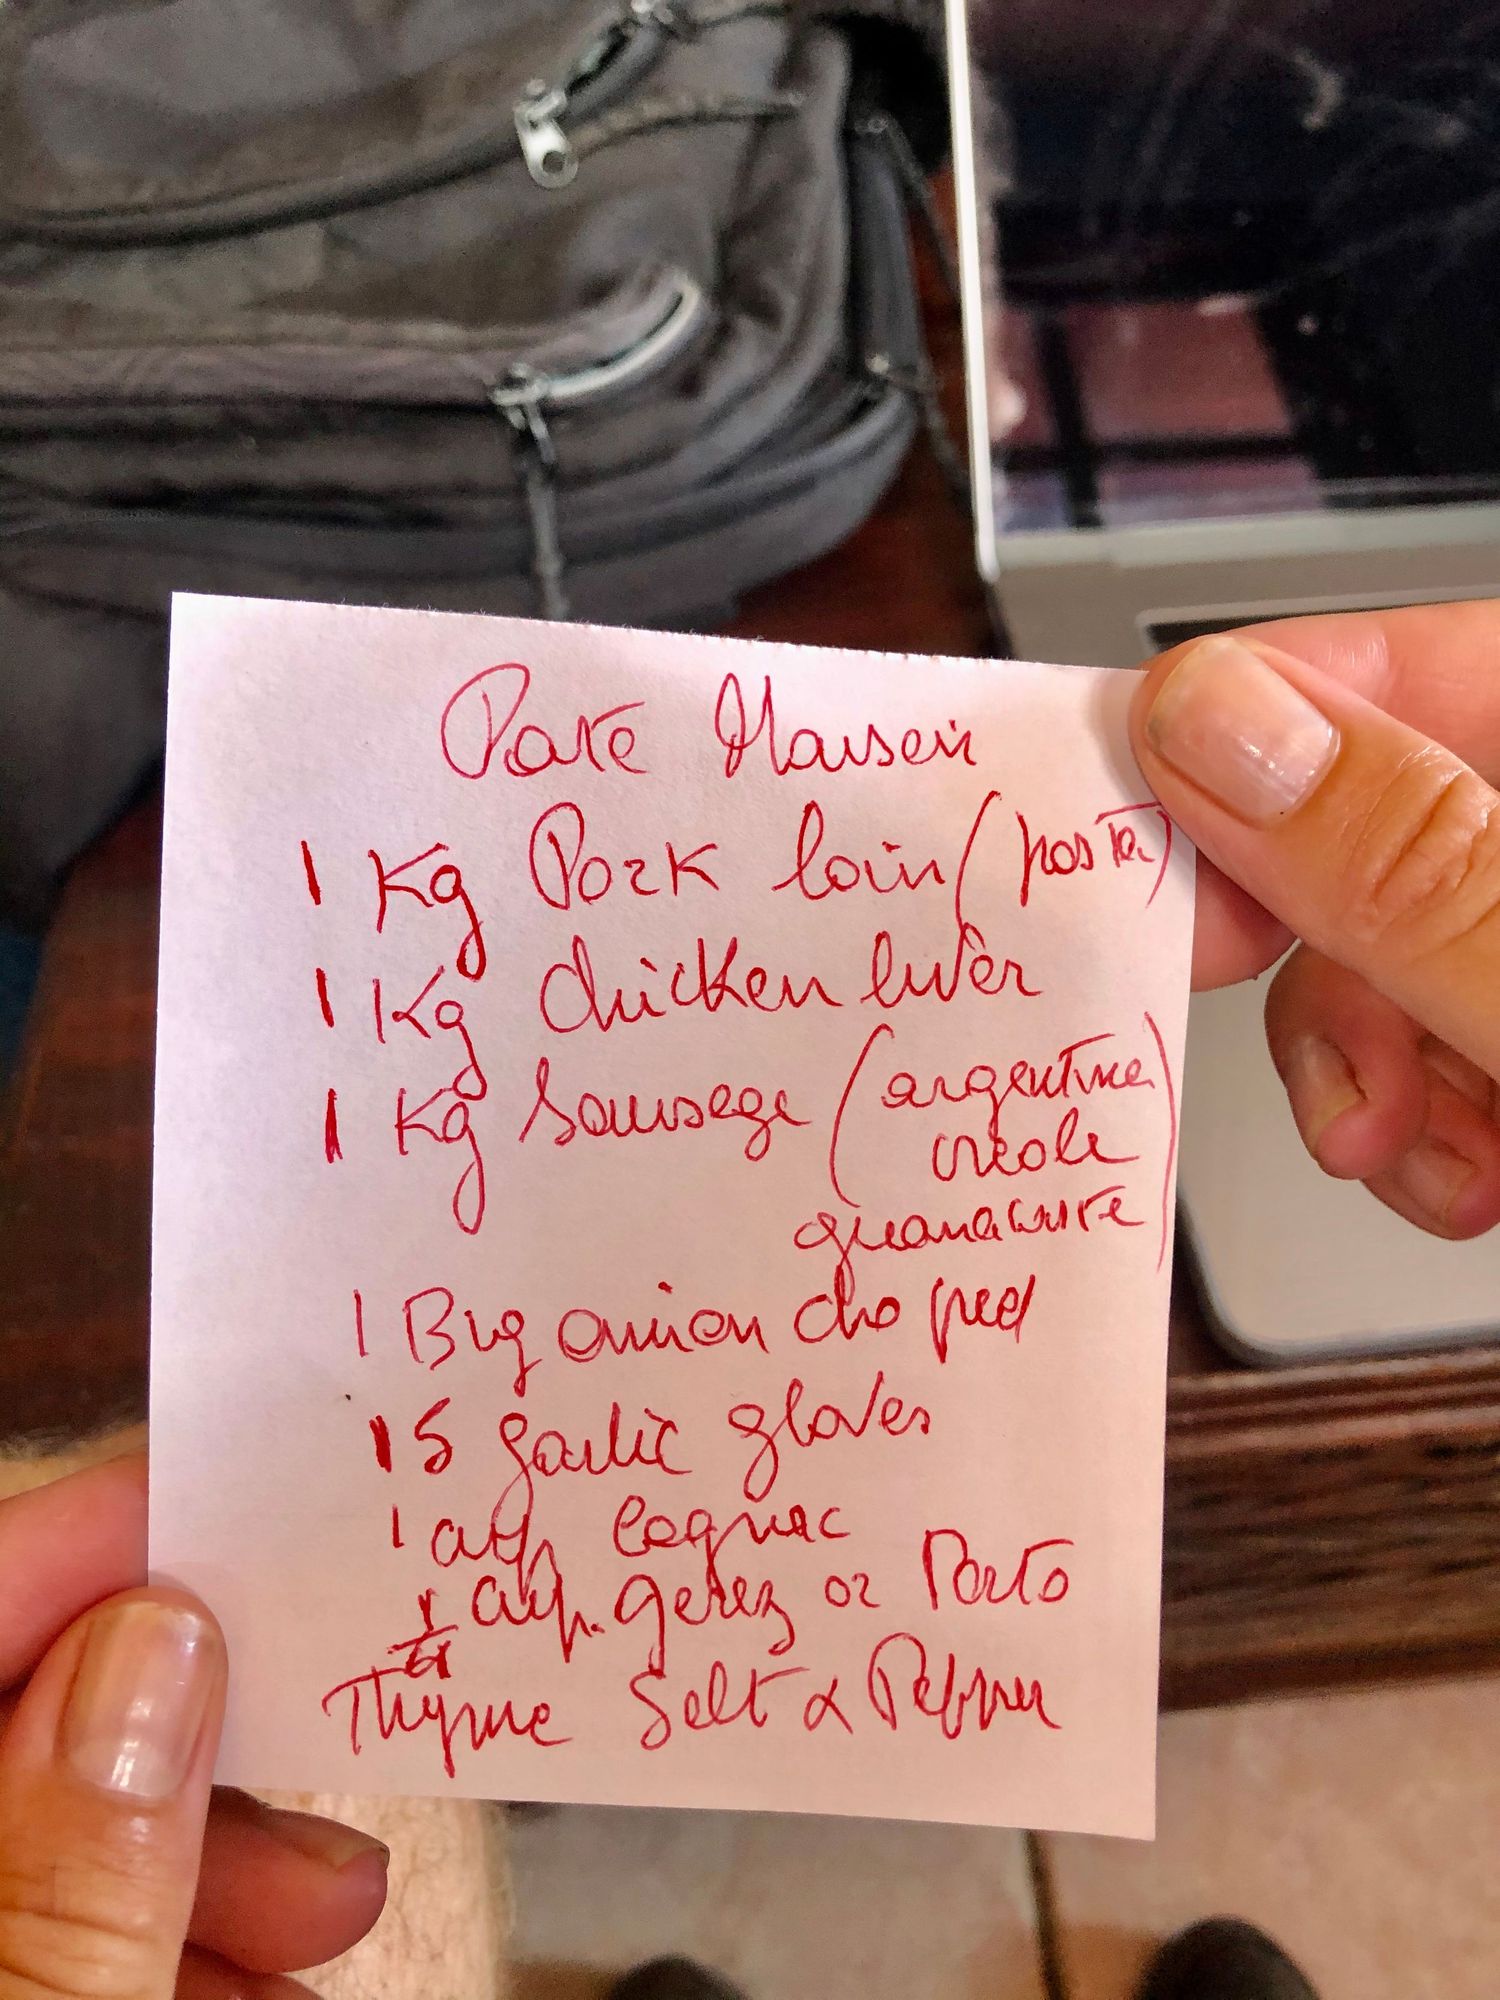 Pate Maison
1 Kg Pork loin (posta)
1 Kg chicken liver
1 Kg Sausage (argentine
creole
guanacaste)
1 Big onion choped
15 garlic gloves
1 cup cognac
cup. gerez or Porto
Thyme Salt & Pepper